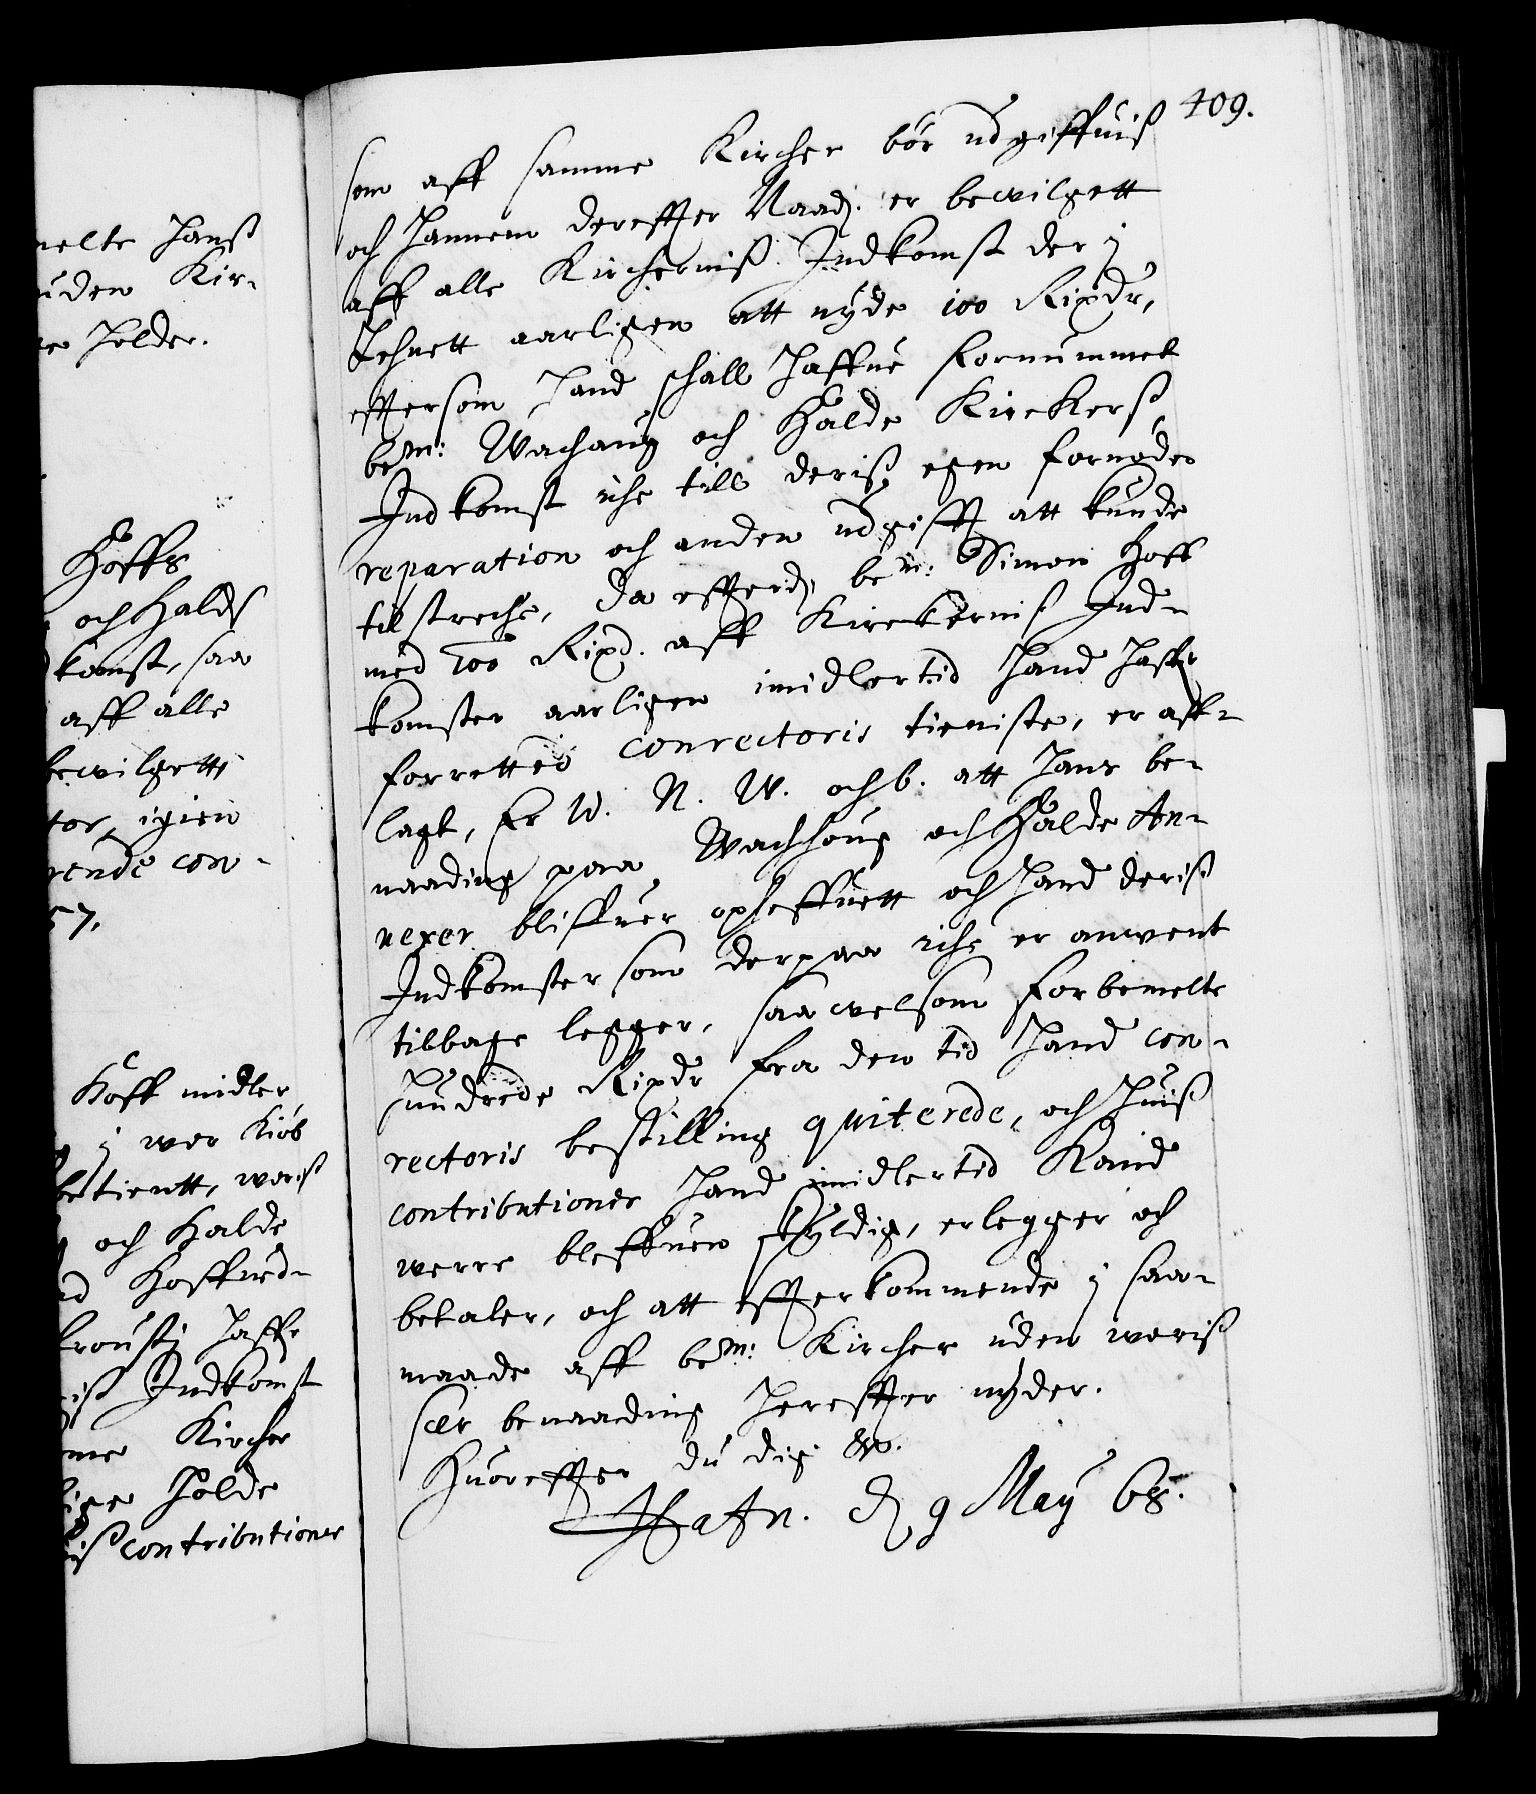 409.
som aff samme Kircher bör udgiffuis
och hannem dereffter Naad: er bewilgett
aff alle Kirchernis Indkomst der j
Lehnett aarligen att nyde 100 Rixdr,
effersom hand schall haffue fornummet
bem: Wachaug och Halde Kirckers
Indkomst iche till deris egen fornöden
reparation och anden udgifft att kunde
tilstreche, da effterdj bem: Simon Hoff
med 100 Rixd. aff Kirckernis Ind-
komster aarligen imidlertid hand haffr
forretted conrectoris tieniste, er aff-
lagt, Er W. N. W. och b. att hans be-
naading paa Wachhoug och Halde An-
nexer bliffuer opheffuett och hand deris
Indkomster som derpaa iche er anwent
tilbage legger, saawelsom forbemelte
hundrede Rixdr fra den tid hand con-
rectoris bestilling quiterede, och huis
contributioner hand imidlertid Kand
werre bleffuen skyldig, erlegger och
betaler, och att effterkommende j saa-
maade aff bem: Kircher uden woris
sær benaading hereffter nyder.
Huoreffter du dig &c.
Hafn. d 9 May 68.
melte hans
uden Kir-
holder.
Hoffs
och Halds
komst, saa
aff alle
bewilgett
tor, igien
rende con-
57.
Hoff midler
j wor Kiöb
betientt, woris
och Halde
Hoffued-
haffr
is Indkomst
Kircher
holde
is contributioner